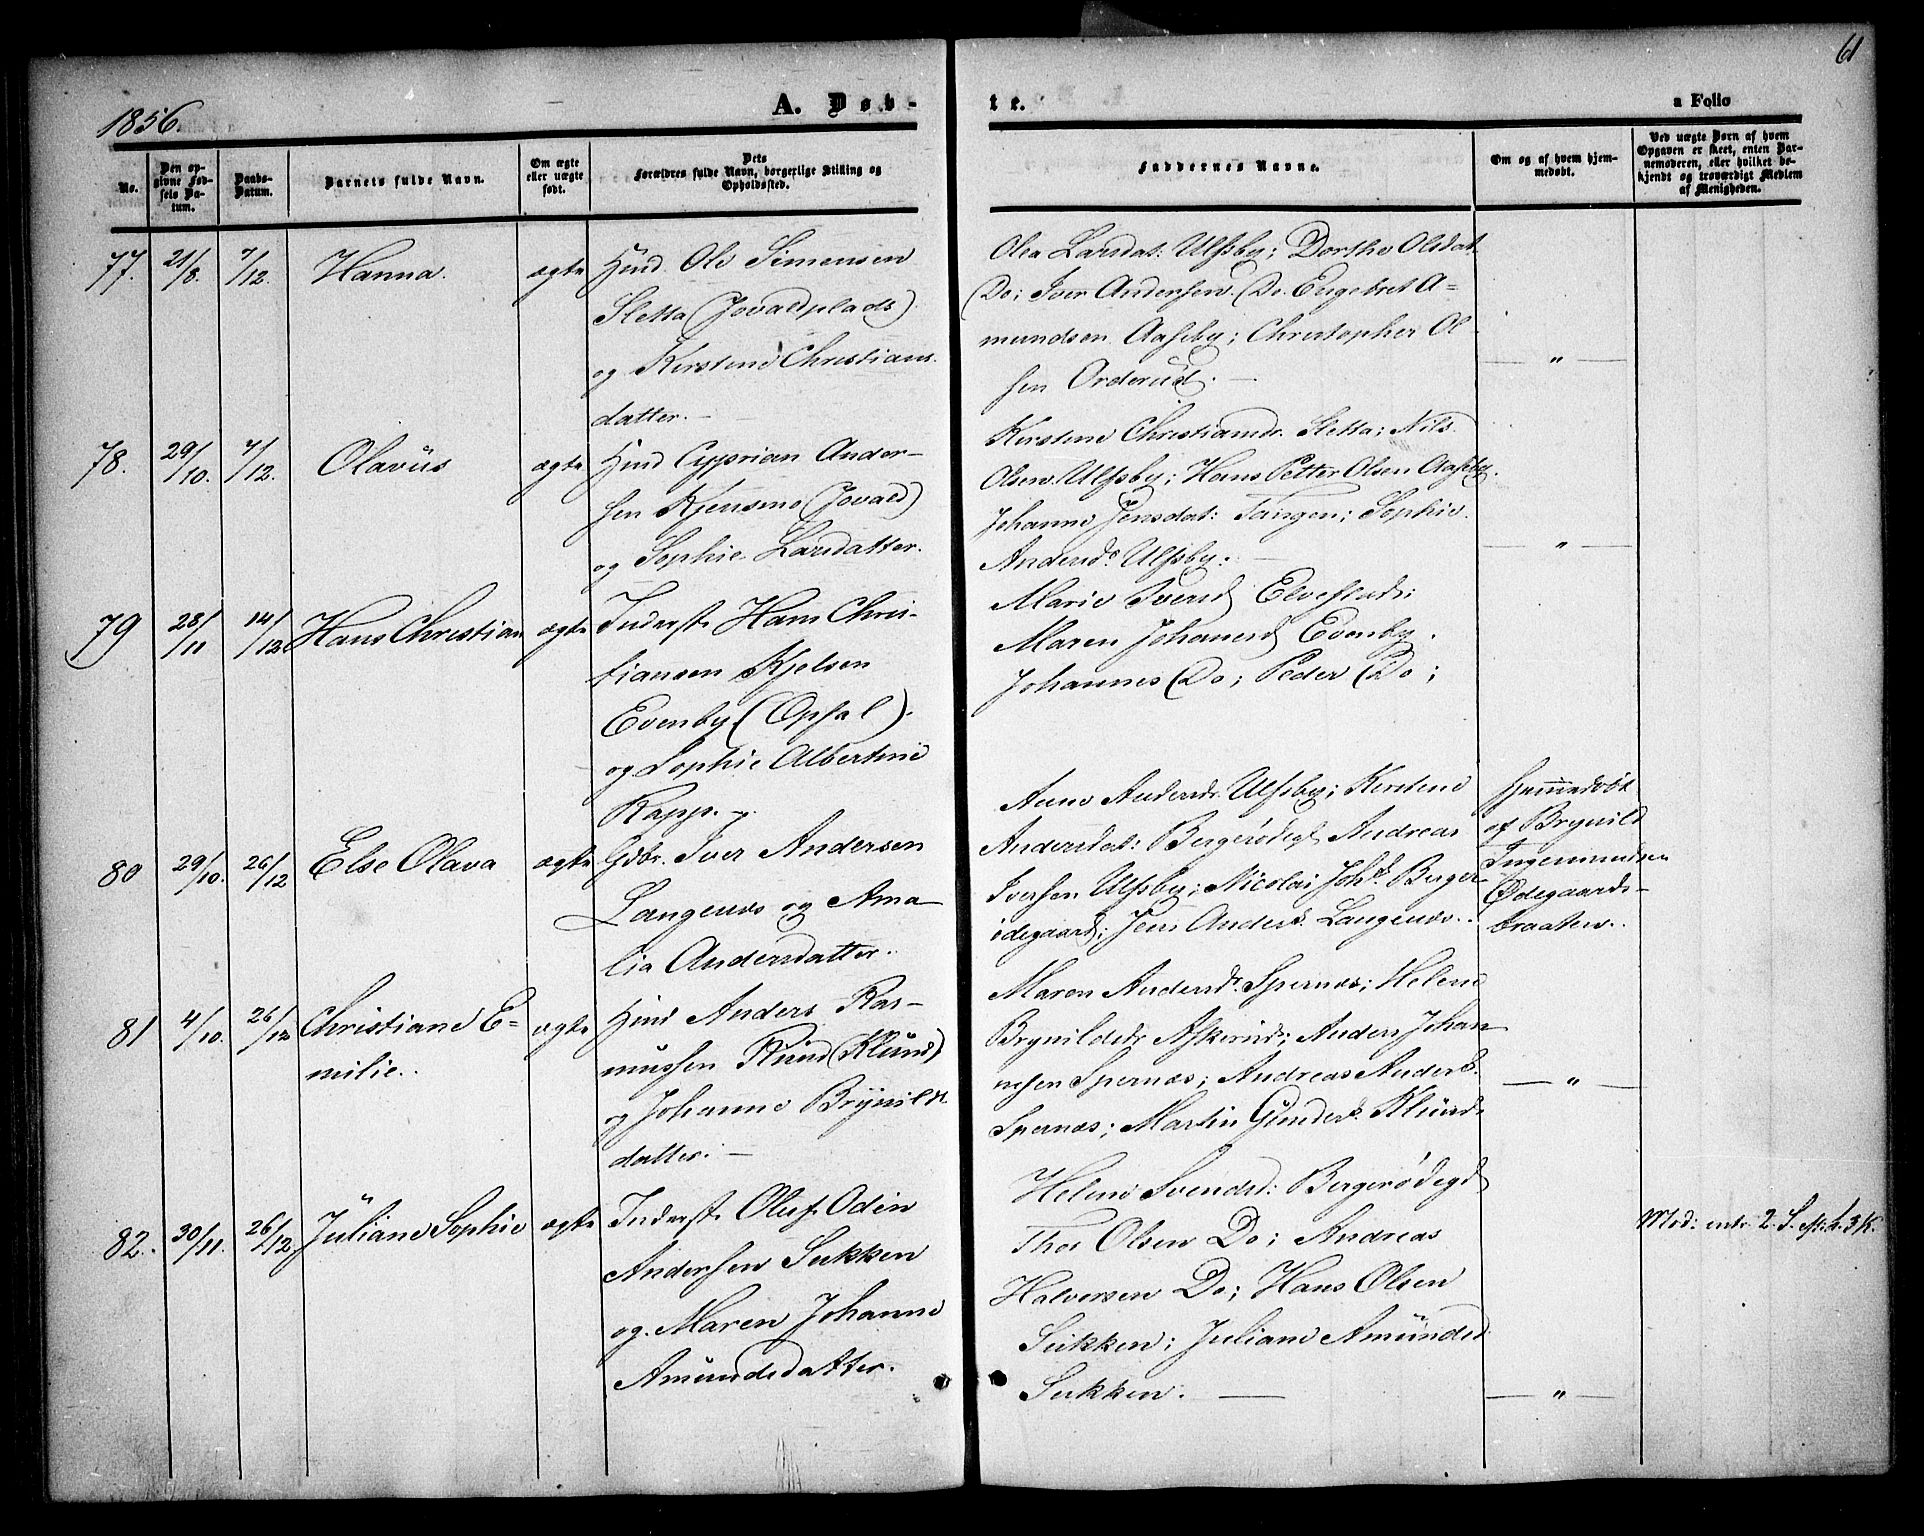 61
1856
A. Døb-
te.
a Folio
No.
Den opgivne Fødsels Datum.
Daabs-Datum.
Barnets fulde Navn.
Om ægte eller uægte født.
Dets Forældres fulde Navn, borgerlige Stilling og Opholdssted.
Faddernes Navne.
Om og af hvem hjemmedøbt.
Ved uægte Børn af hvem Opgaven er skeet, enten Barnemoderen, eller hvilket bekjendt og troværdigt Medlem af Menigheden.
77. 21/8. 7/12. Hanna. ægte Hmd. Ole Simensen
Sletta (Jovaldplads)
og Kirstine Christians
datter. —
Olea Larsdat: Ulfsby; Dorthe Olsdat
Do; Iver Andersen Do. Engebret A=
mundsen Aaseby; Christopher Ol
sen Orderud. —
— " —
78. 29/10. 7/12. Olavus ægte Hmd Cyprian Ander-
sen Kjensmo (Jovald)
og Sophie Larsdatter.
Kirstine Christiansdr. Sletta; Nils
Olsen Ulfsby; Hans Petter Olsen Aaseby.
Johanne Jensdat: Tangen; Sophie
Andersd. Ulfsby. —
— " —
79 28/11 14/12 Hans Christian ægte Inderst Hans Chris-
tiansen Kjelsen
Evenby (Opsal).
og Sophie Albertine
Rapp. —
Marie Iversd Elvestad;
Maren Johanesd Evenby.
Johannes Do; Peder Do;
80 29/10. 26/12 Else Olava ægte Gdbr. Iver Andersen
Langenæs og Ama
lia Andersdatter.
Anne Andersdr. Ulfsby; Kirstine
Andersdat: Bergerødegd Andreas
Iversen Ulfsby; Nicolai Johs. Berger-
ødegaard; Jens Anders. Langenæs.
Hjemmedøbt
af Brynild
Ingemundsen
Ødegaards-
braaten.
81 4/10. 26/12 Christiane E=
milie. ægte Hmd Anders Ras-
mussen Klund (Klund)
og Johanne Brynilds
datter. —
Maren Andersdr. Spernæs; Helene
Brynildsdr Askerud; Anders Johan
nesen Spernæs; Andreas Anders.
Spernæs; Martin Gunders. Klund
— " —
82. 30/11. 26/12. Juliane Sophie ægte Inderst Oluf Odin
Andersen Sukken
og Maren Johanne
Amundsdatter.
Helene Svendsd: Bergerødegd
Thor Olsen Do; Andreas
Halvorsen Do; Hans Olsen
Sukken; Juliane Amundsd
Sukken. —
— " —
Mod: entr. 2. S. e. H. 3 K.